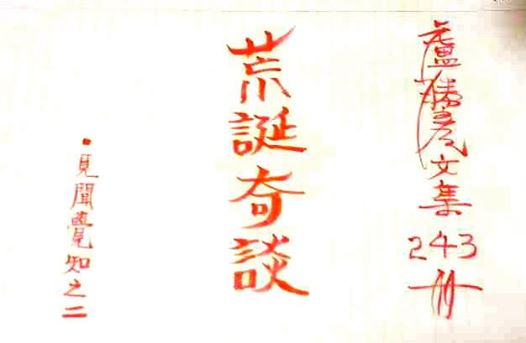 盧勝彥文集243冊
荒誕奇談
•見聞覺知之二